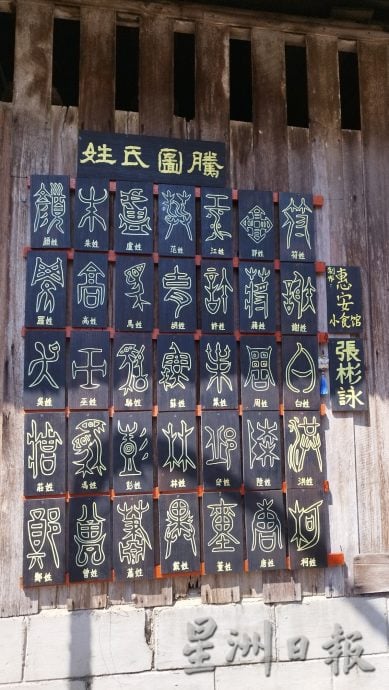 姓氏圖騰
顏姓 朱姓 盧姓 范姓 江姓 郭姓 符姓
羅姓 高姓 馬姓 胡姓 許姓 蔣姓 謝姓
吳姓 巫姓 駱姓 蘇姓 葉姓 周姓 白姓
莊姓 馮姓 彭姓 林姓 丘姓 陸姓 洪姓
鄭姓 曾姓 蕭姓 戴姓 董姓 唐姓 柯姓
制作
惠安
小食馆
張彬詠
星洲日報